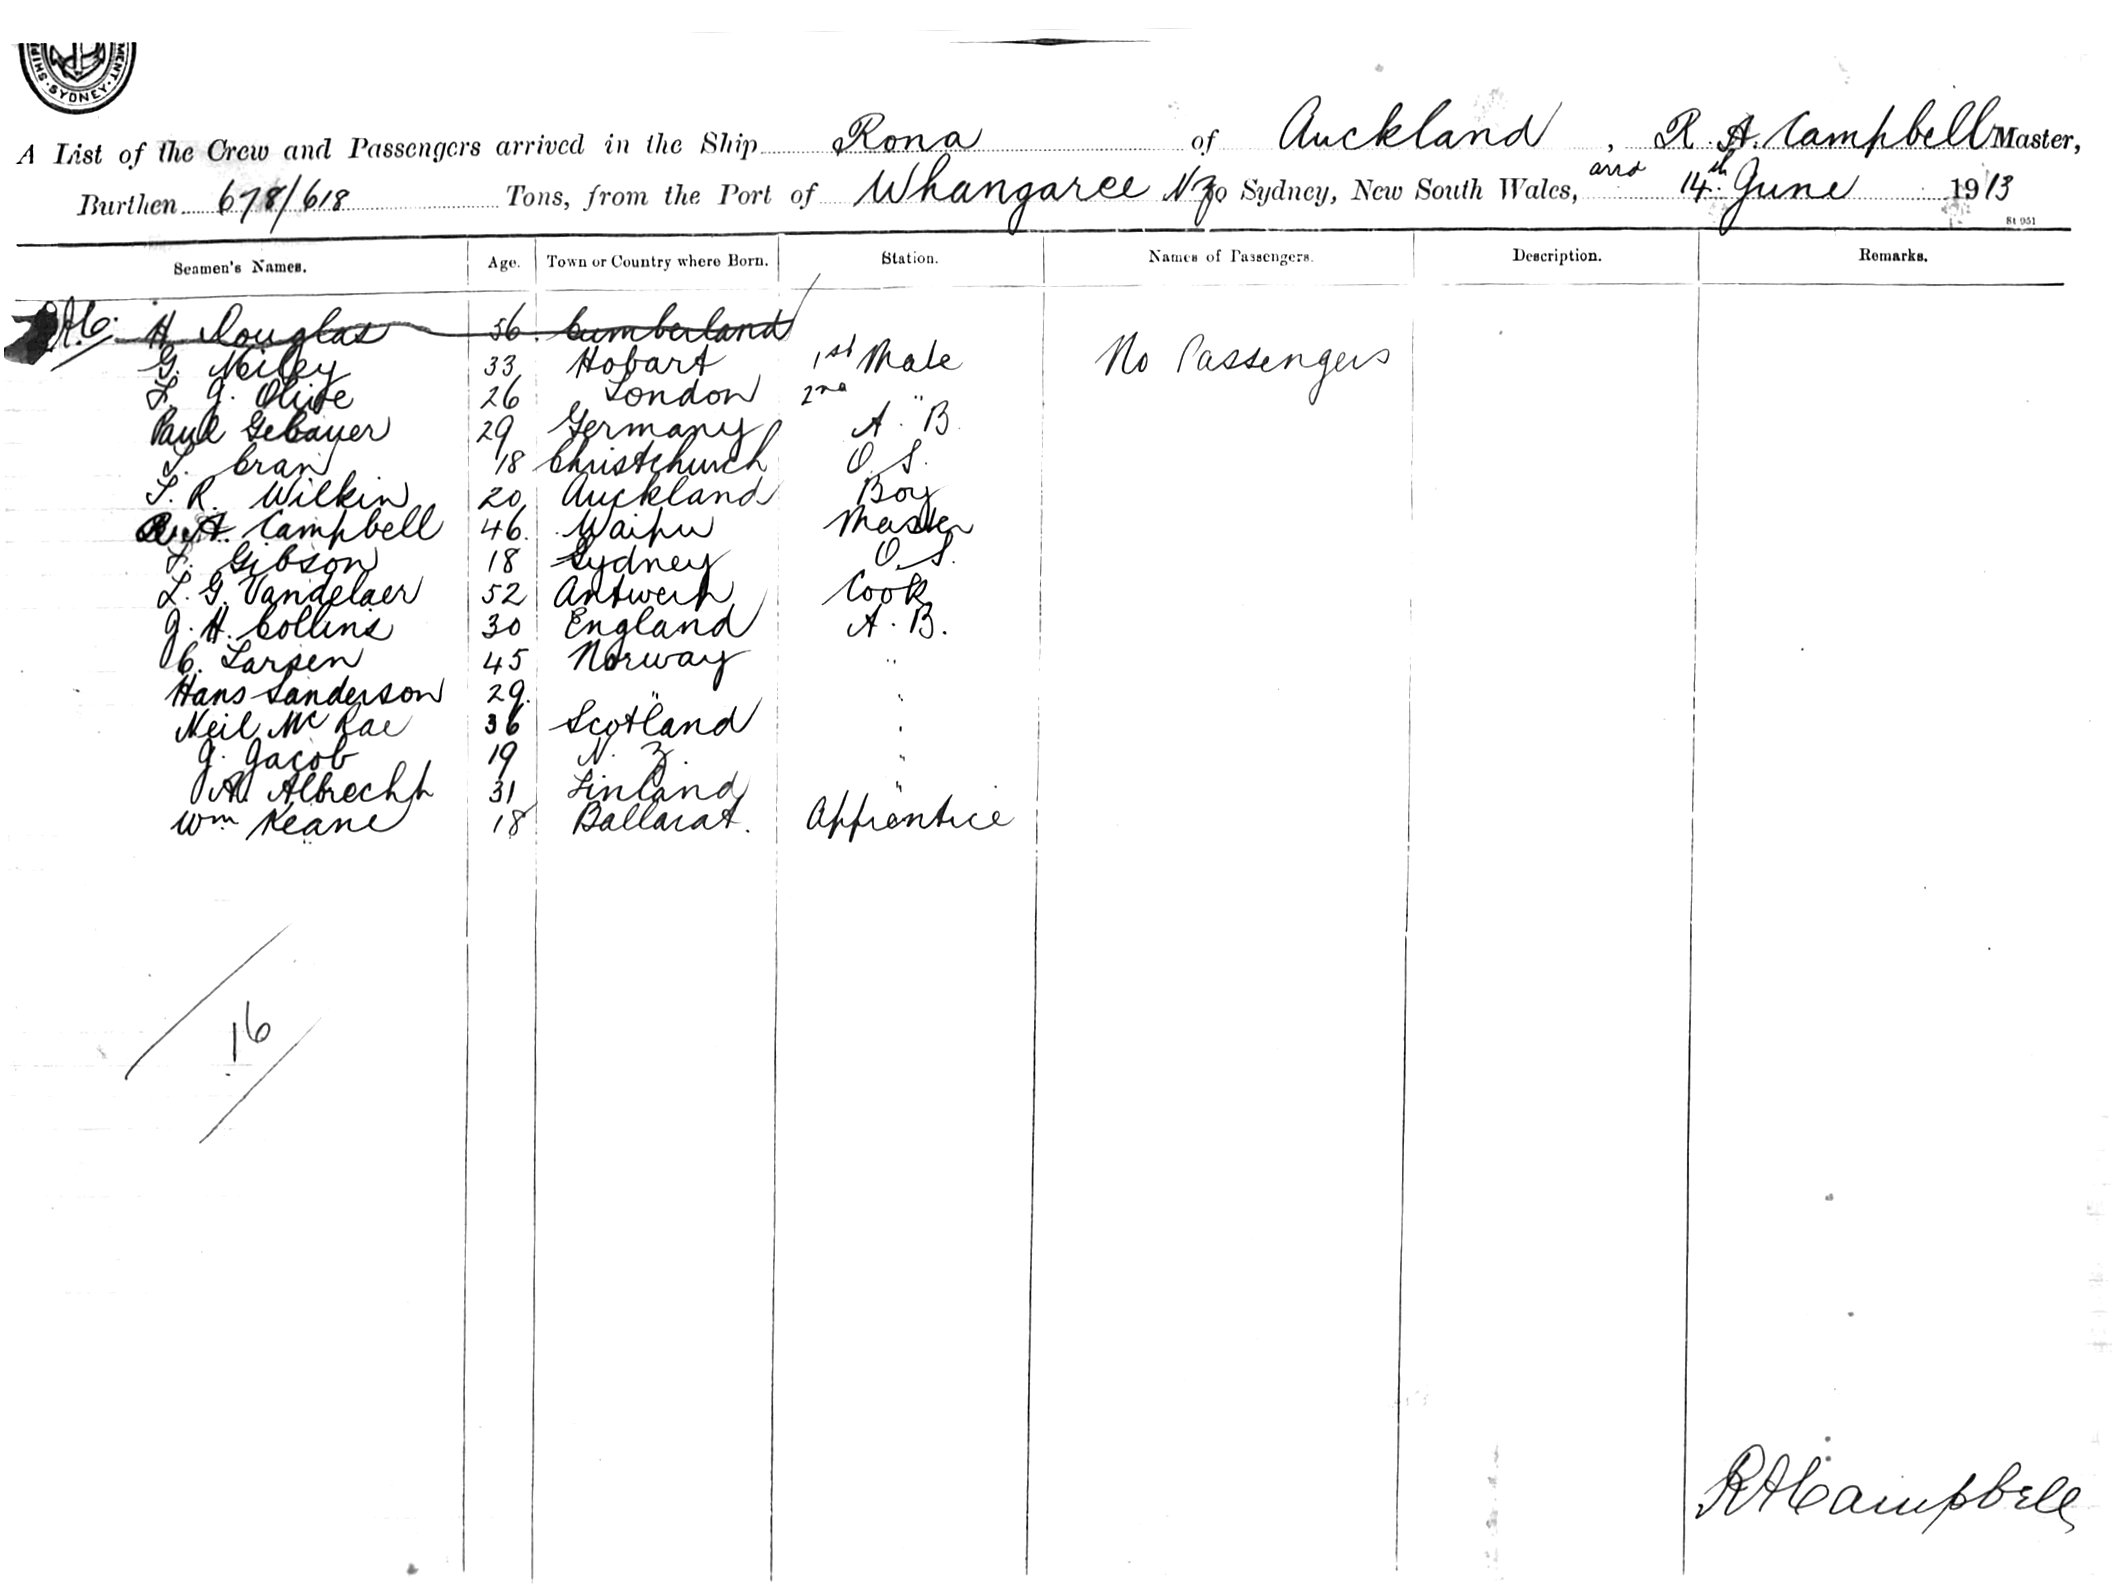 MENT. SYDNEY. SHIP
A List of the Crew and Passengers arrived in the Ship Rona of Auckland, R. A. Campbell Master,
Burthen 678/618 Tons, from the Port of Whangaree NZ to Sydney, New South Wales, arrd 14th June 1913
St 951
Seamen's Names. Age. Town or Country where Born. Station. Names of Passengers. Description. Remarks.
H Douglas 56. Cumberland
G. Neiley 33 Hobart 1st Mate No Passengers
L. G. Olive 26 London 2nd "
Paul Gebauer 29 Germany A. B.
Cran 18 Christchurch O. S.
R. Wilkin 20 Auckland Boy
R. A. Campbell 46. Waipu Master
Gibson 18 Sydney O. S.
L. G. Vandelaer 52 Antwerp Cook
J. H. Collins 30 England A. B.
C. Larsen 45 Norway "
Hans Sanderson 29. " "
Neil McRae 36 Scotland "
J. Jacob 19 N. Z. "
A. Albrecht 31 Finland "
Wm Keane 18 Ballarat. Apprentice
16
RACampbell